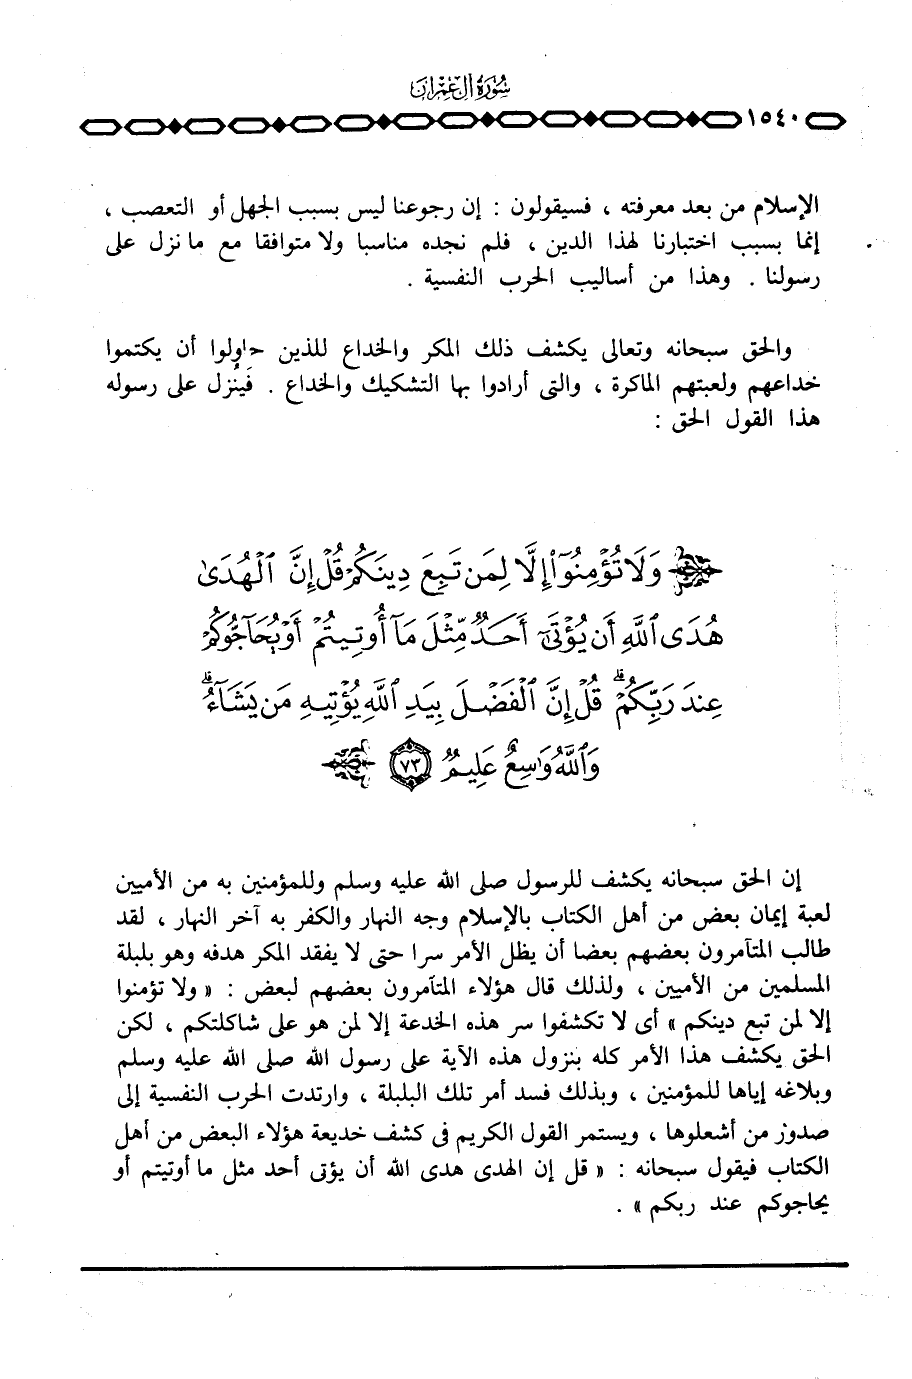 سُورَةُ آلِ عِمْرَانَ
١٥٤٠
الإسلام من بعد معرفته ، فسيقولون : إن رجوعنا ليس بسبب الجهل أو التعصب ،
إنما بسبب اختبارنا لهذا الدين ، فلم نجده مناسبا ولا متوافقا مع ما نزل على
رسولنا . وهذا من أساليب الحرب النفسية .
والحق سبحانه وتعالى يكشف ذلك المكر والخداع للذين حاولوا أن يكتموا
خداعهم ولعبتهم الماكرة ، والتى أرادوا بها التشكيك والخداع . فَيُنزل على رسوله
هذا القول الحق :
وَلَا تُؤْمِنُوٓا۟ إِلَّا لِمَن تَبِعَ دِينَكُمْ قُلْ إِنَّ ٱلْهُدَىٰ
هُدَى ٱللَّهِ أَن يُؤْتَىٰٓ أَحَدٌ مِّثْلَ مَآ أُوتِيتُمْ أَوْ يُحَآجُّوكُمْ
عِندَ رَبِّكُمْ ۗ قُلْ إِنَّ ٱلْفَضْلَ بِيَدِ ٱللَّهِ يُؤْتِيهِ مَن يَشَآءُ ۗ
وَٱللَّهُ وَٰسِعٌ عَلِيمٌ ٧٣
إن الحق سبحانه يكشف للرسول صلى الله عليه وسلم وللمؤمنين به من الأميين
لعبة إيمان بعض من أهل الكتاب بالإسلام وجه النهار والكفر به آخر النهار ، لقد
طالب المتآمرون بعضهم بعضا أن يظل الأمر سرا حتى لا يفقد المكر هدفه وهو بلبلة
المسلمين من الأميين ، ولذلك قال هؤلاء المتآمرون بعضهم لبعض : « ولا تؤمنوا
إلا لمن تبع دينكم » أى لا تكشفوا سر هذه الخدعة إلا لمن هو على شاكلتكم ، لكن
الحق يكشف هذا الأمر كله بنزول هذه الآية على رسول الله صلى الله عليه وسلم
وبلاغه إياها للمؤمنين ، وبذلك فسد أمر تلك البلبلة ، وارتدت الحرب النفسية إلى
صدور من أشعلوها ، ويستمر القول الكريم فى كشف خديعة هؤلاء البعض من أهل
الكتاب فيقول سبحانه : « قل إن الهدى هدى الله أن يؤتى أحد مثل ما أوتيتم أو
يحاجوكم عند ربكم » .